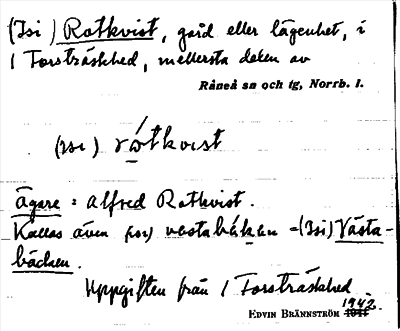 (Isi) Rotkvist, gård eller lägenhet, i
1 Forsträskhed, mellersta delen av
Råneå sn och tg, Norrb. l.
(isi) rótkvist
Ägare: Alfred Rotkvist.
Kallas även (isi) vestabäkan = (Isi) Västa-
bäcken.
Uppgiften från 1 Forsträskhed
EDVIN BRÄNNSTRÖM 1942.